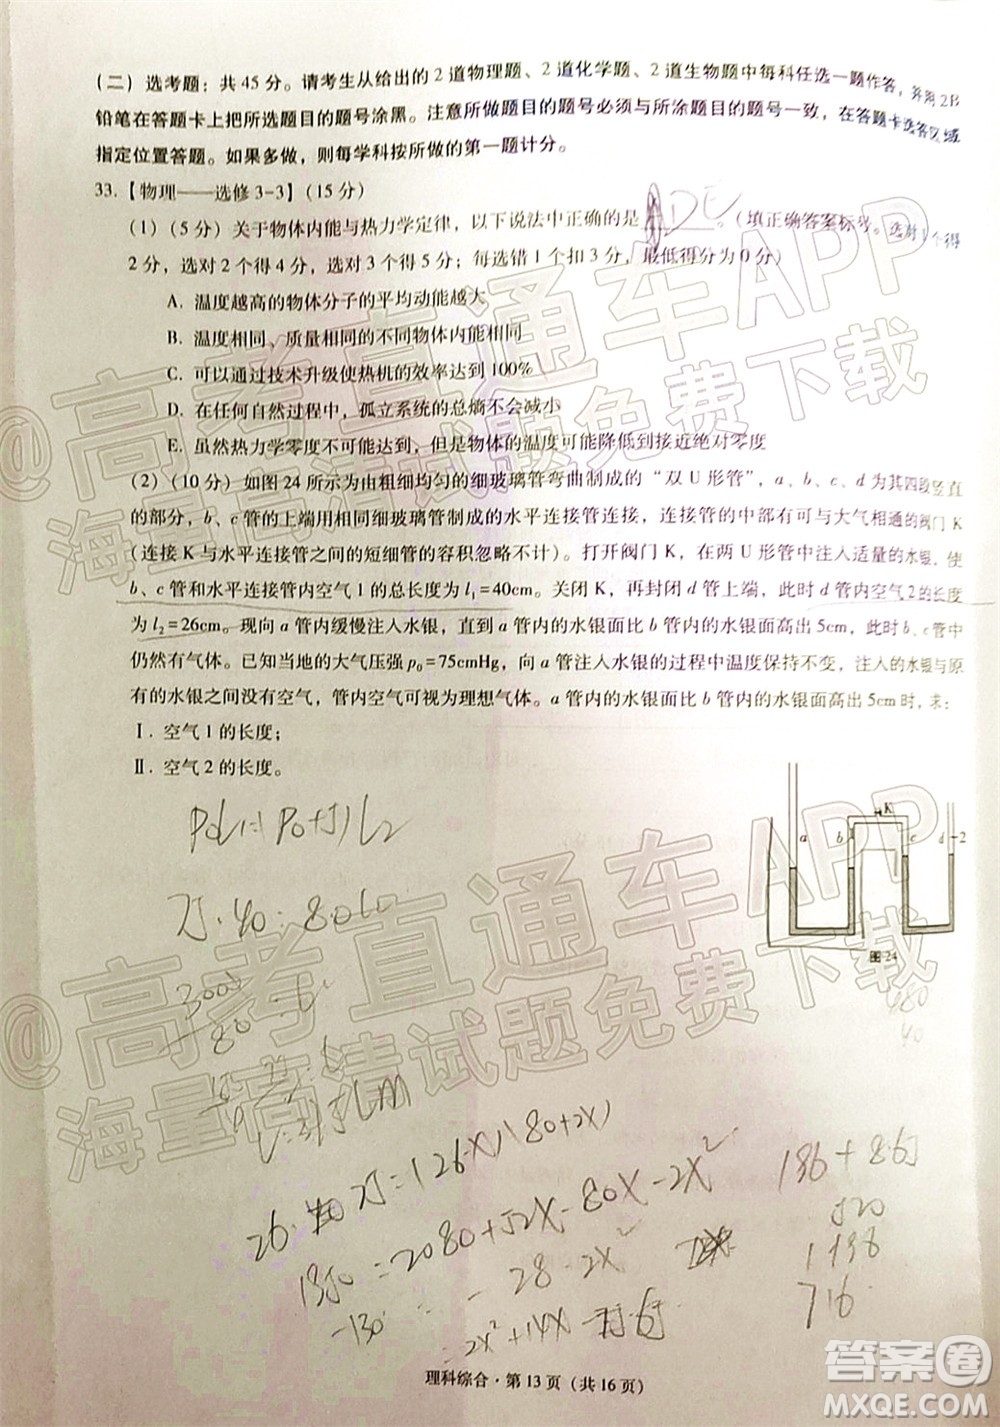 （二）选考题：共 45 分。请考生从给出的 2 道物理题、2 道化学题、2 道生物题中每科任选一题作答，并用 2B
铅笔在答题卡上把所选题目的题号涂黑。注意所做题目的题号必须与所涂题目的题号一致，在答题卡选答区域
指定位置答题。如果多做，则每学科按所做的第一题计分。
33.【物理——选修 3-3】(15 分)
(1) (5 分) 关于物体内能与热力学定律，以下说法中正确的是 DE 。(填正确答案标号。选对 1 个得
2 分，选对 2 个得 4 分，选对 3 个得 5 分；每选错 1 个扣 3 分，最低得分为 0 分)
A. 温度越高的物体分子的平均动能越大
B. 温度相同、质量相同的不同物体内能相同
C. 可以通过技术升级使热机的效率达到 100%
D. 在任何自然过程中，孤立系统的总熵不会减小
E. 虽然热力学零度不可能达到，但是物体的温度可能降低到接近绝对零度
(2) (10 分) 如图 24 所示为由粗细均匀的细玻璃管弯曲制成的 “双 U 形管”，a、b、c、d 为其四段竖直
的部分，b、c 管的上端用相同细玻璃管制成的水平连接管连接，连接管的中部有可与大气相通的阀门 K
(连接 K 与水平连接管之间的短细管的容积忽略不计)。打开阀门 K，在两 U 形管中注入适量的水银，使
b、c 管和水平连接管内空气 1 的总长度为 l₁=40cm。关闭 K，再封闭 d 管上端，此时 d 管内空气 2 的长度
为 l₂=26cm。现向 a 管内缓慢注入水银，直到 a 管内的水银面比 b 管内的水银面高出 5cm，此时 b、c 管中
仍然有气体。已知当地的大气压强 p₀=75cmHg，向 a 管注入水银的过程中温度保持不变，注入的水银与原
有的水银之间没有空气，管内空气可视为理想气体。在 a 管内的水银面比 b 管内的水银面高出 5cm 时，求：
Ⅰ. 空气 1 的长度；
Ⅱ. 空气 2 的长度。
K
a b c d 2
图 24
480
40
3000
80
-130
186 + 8.65
520
716
理科综合·第 13 页 (共 16 页)
@高考直通车APP
海量高清试题免费下载
@高考直通车APP
海量高清试题免费下载
答案圈
MXQE.COM